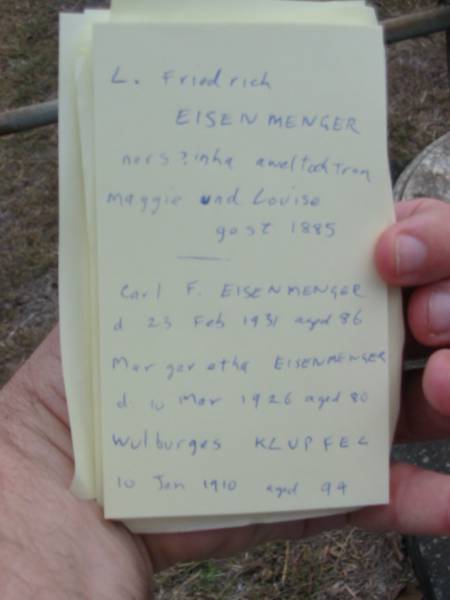 L. Friedrich
EISENMENGER
nors?inha aweltochtran
Maggie und Louise
gest 1885
Carl F. EISENMENGER
d 23 Feb 1931 aged 86
Margaretha EISENMENGER
d. 10 Mar 1926 aged 80
Wulburges KLUPFEL
10 Jan 1910 aged 94